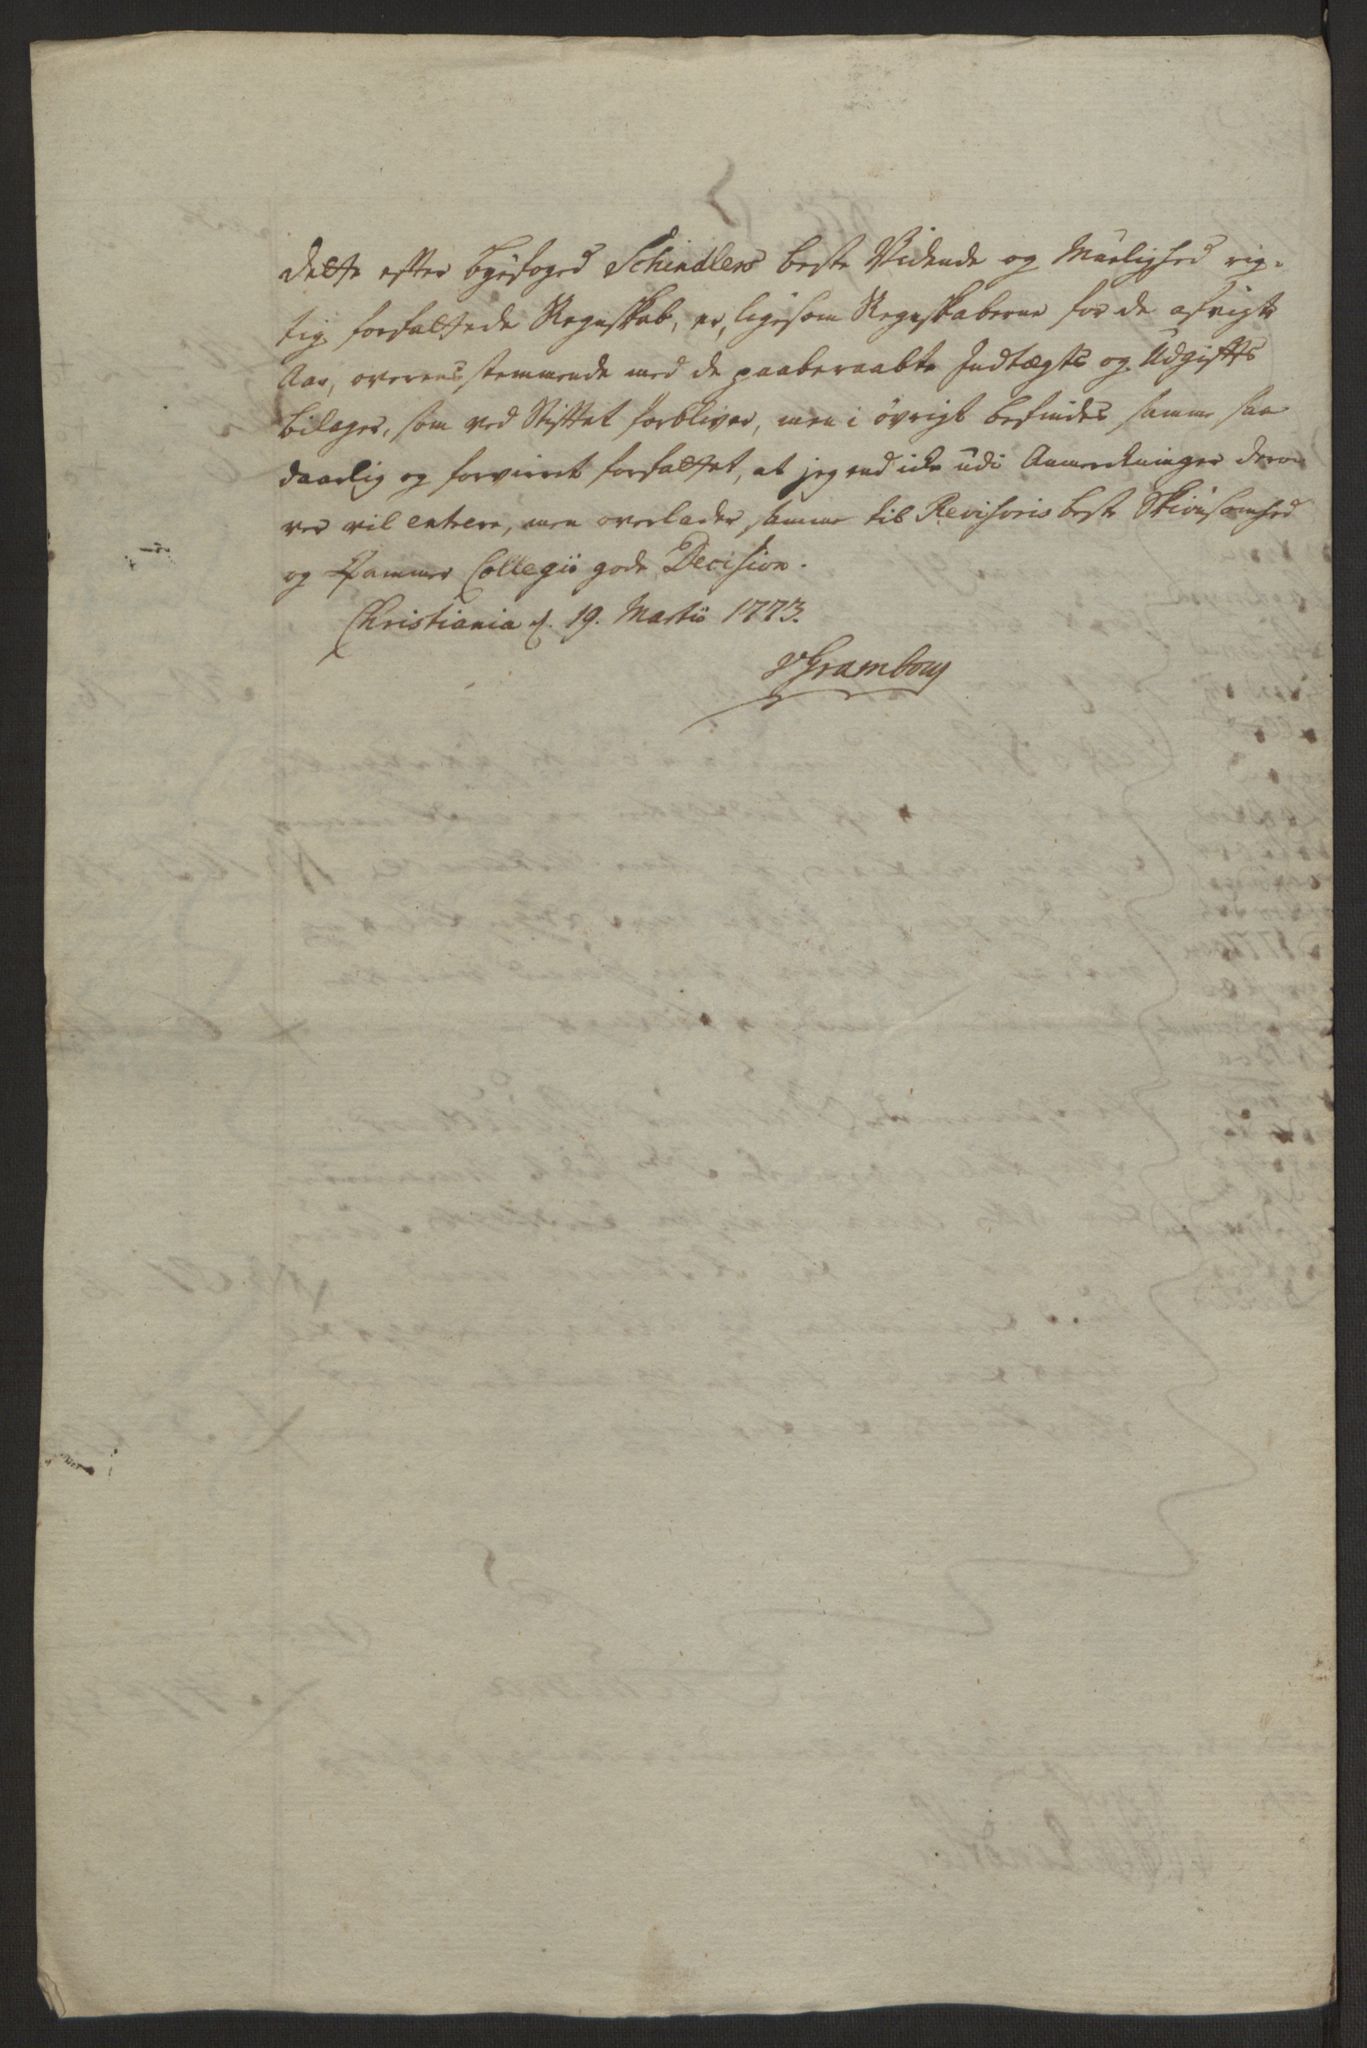 Dette efter byefoged Schindlers beste Vidende og Muelighed rig-
tig forfattede Regnskab, er, ligesom Regnskaberne for de øfrige
Aar, overensstemmende med de paaberaabte Indtægts og Udgifts
bilager, som ved Stiftet forbliver, men i øvrigt befindes samme saa
daarlig og forvirret forfattet, at jeg end icke udi Anmerkninger dero-
ver vil entrere, men overlader samme til Revisoris beste Skiønsomhed
og Cammer Collegii gode Decision.
Christiania d. 19. Martii 1773.
vGrambow